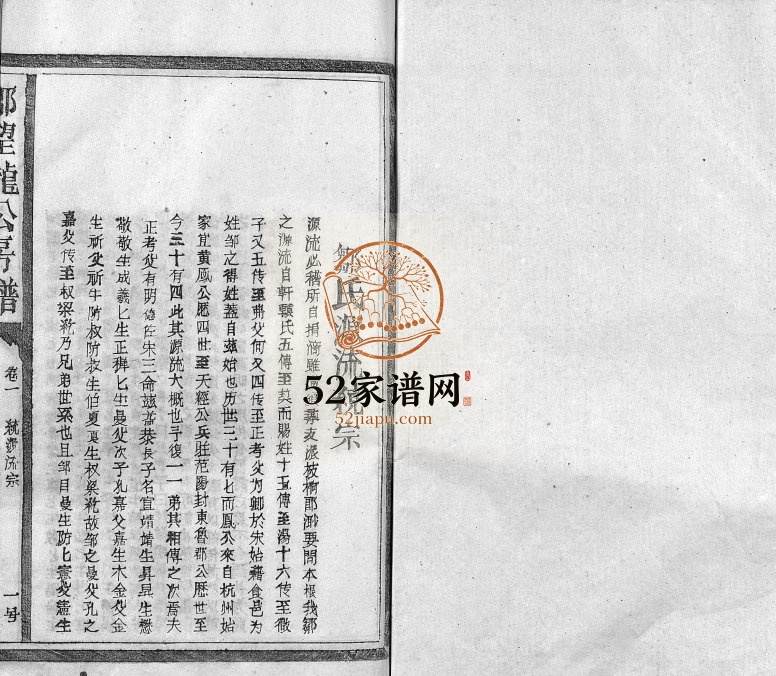 鄒氏源流統宗
源流必稽所自捐滴雖
之源流自軒轅氏五傳至契而賜姓十五傳至湯十六傳至微
子又五传至弗父何又四传至正考父为卿於宋始藉食邑为
姓邹之得姓蓋自兹始也历世三十有七而鳳公來自杭州始
家宜黄鳳公歷四世至天經公兵驻范陽封東魯郡公歷世至
今三十有四此其源流大概也予復一一弟其相傳之次焉夫
正考父有阴德佐宋三命兹益恭长子名宜靖靖生昇昇生懋
敬敬生成義七生正稱七生曼父次子孔嘉父嘉生木金父金
生祈父祈牛防叔防叔生伯夏夏生叔梁紇故邹之曼父孔之
嘉父传至叔梁紇乃兄弟世系也且邹自曼生防七憲父憲生
鄒望龍公房譜
卷一
統源流宗
一号
52家谱网
52jiapu.com